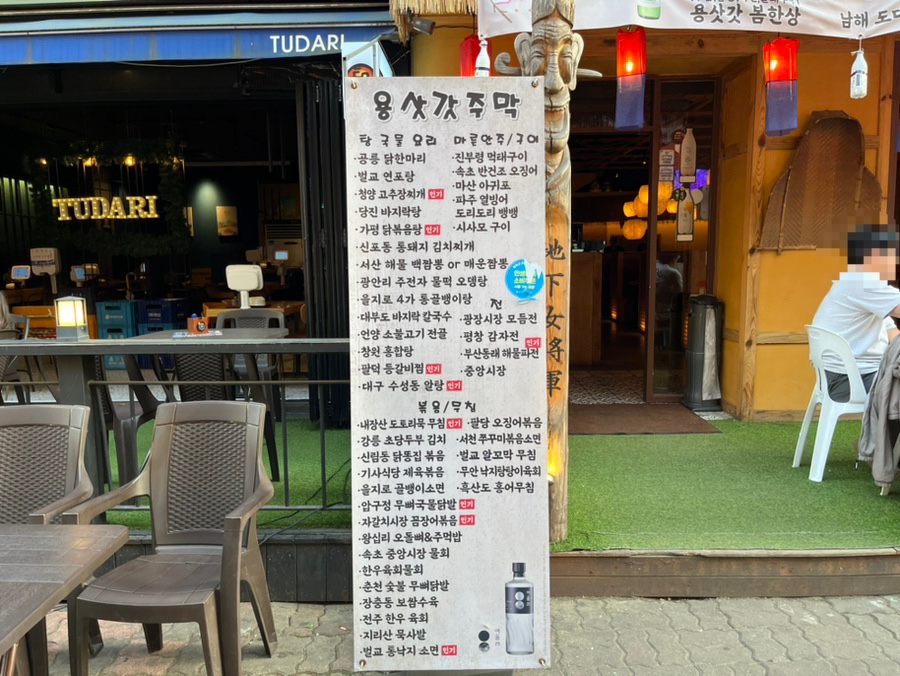 TUDARI
TUDARI
용삿갓 봄한상
남해 도다
용삿갓주막
탕 국물 요리
·공릉 닭한마리
·벌교 연포탕
·청양 고추장찌개 인기
·당진 바지락탕
·가평 닭볶음탕 인기
·신포동 통돼지 김치찌개
·서산 해물 백짬뽕 or 매운짬뽕
·광안리 주전자 물떡 오뎅탕
·을지로 4가 통골뱅이탕
·대부도 바지락 칼국수
·언양 소불고기 전골
·창원 홍합탕
·팔덕 등갈비찜 인기
·대구 수성동 알탕 인기
마른안주/구이
·진부령 먹태구이
·속초 반건조 오징어
·마산 아귀포
·파주 열빙어
도리도리 뱅뱅
·시사모 구이
전
·광장시장 모듬전
·평창 감자전 인기
·부산동래 해물파전
·중앙시장
볶음/무침
·내장산 도토리묵 무침 인기
·강릉 초당두부 김치
·신림동 닭똥집 볶음
·기사식당 제육볶음
·을지로 골뱅이소면
·압구정 무뼈국물닭발 인기
·자갈치시장 꼼장어볶음 인기
·왕십리 오돌뼈&주먹밥
·속초 중앙시장 물회
·한우육회물회
·춘천 숯불 무뼈닭발
·장충동 보쌈수육
·전주 한우 육회
·지리산 묵사발
·벌교 통낙지 소면 인기
·팔당 오징어볶음
·서천 쭈꾸미볶음소면
·벌교 알꼬막 무침
·무안 낙지탕탕이육회
·흑산도 홍어무침
地下女將軍